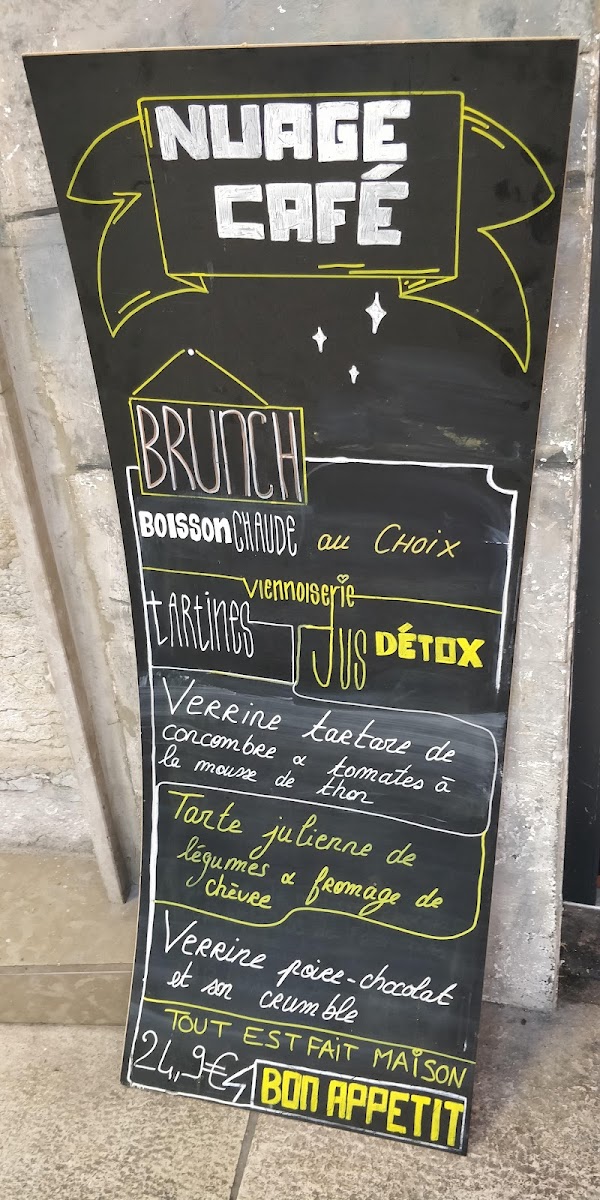 NUAGE
CAFÉ
BRUNCH
BOISSON CHAUDE au CHOIX
Viennoiserie
tARtiNES
JUS DÉTOX
Verrine tartare de
concombre & tomates à
la mousse de thon
Tarte julienne de
légumes & fromage de
chèvre
Verrine poire-chocolat
et son crumble
TOUT EST FAIT MAISON
24,9€
BON APPETIT